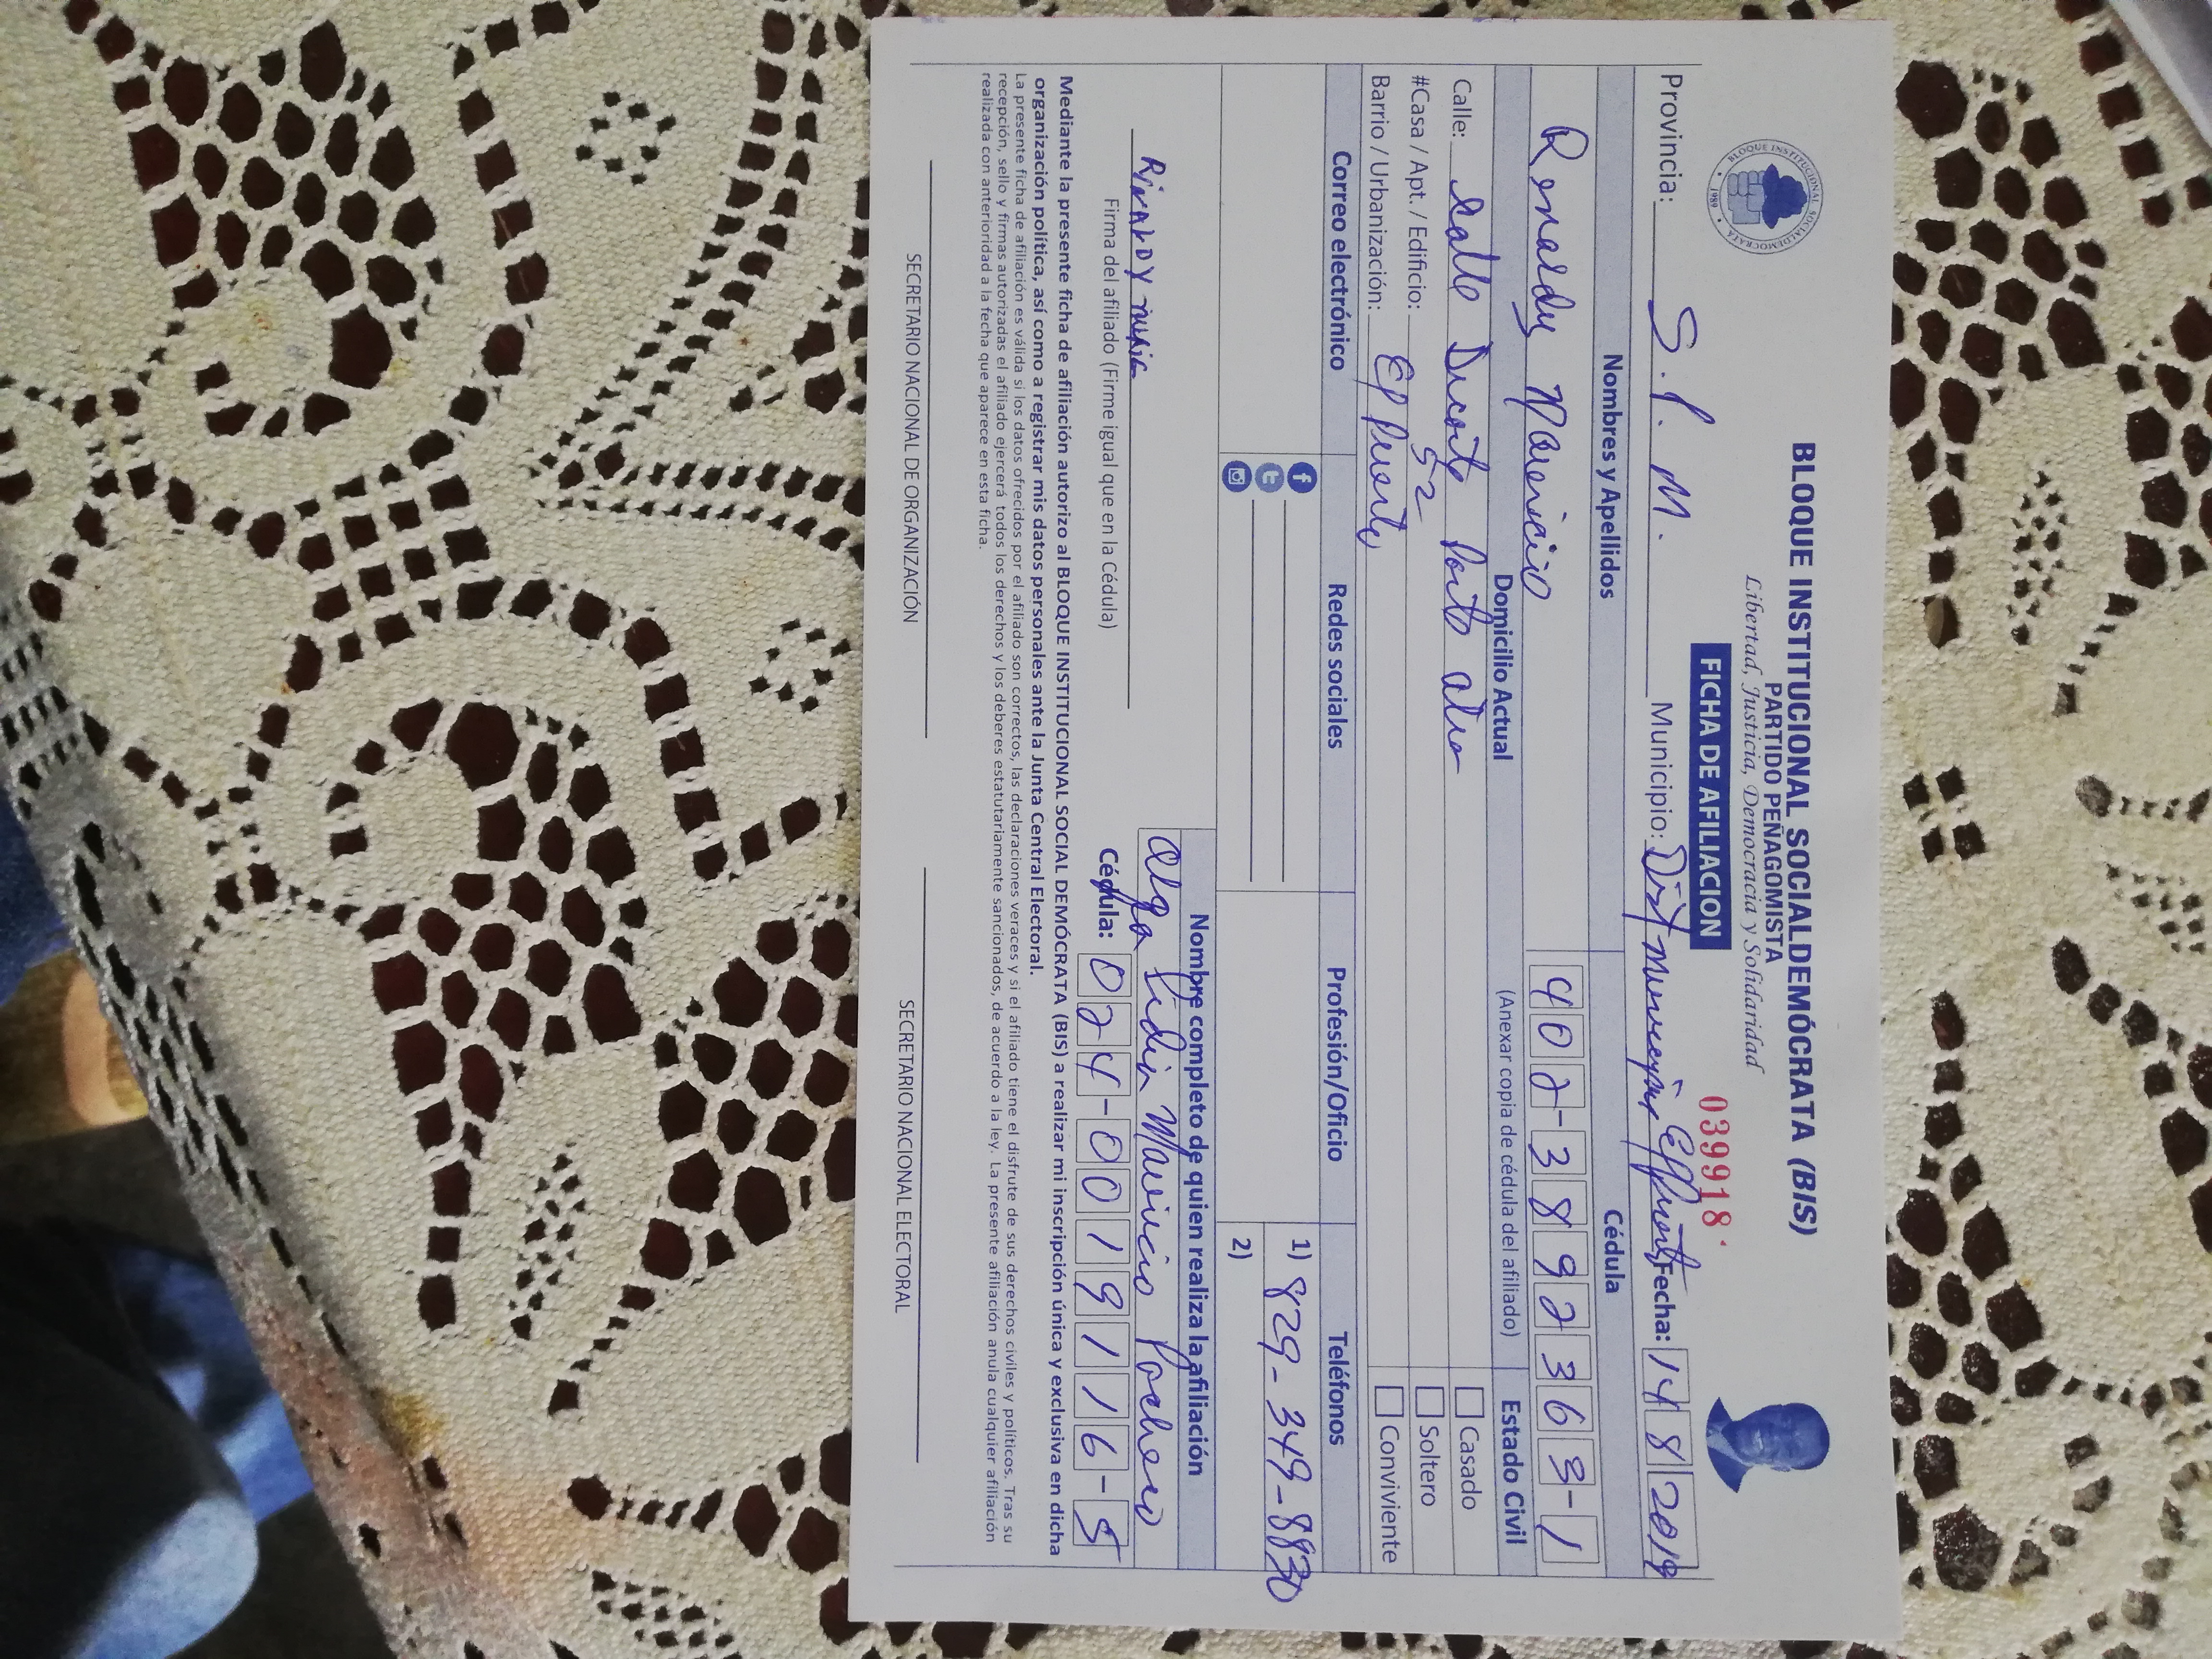 BLOQUE INSTITUCIONAL SOCIALDEMÓCRATA (BIS)
PARTIDO PEÑAGOMISTA
Libertad, Justicia, Democracia y Solidaridad
BLOQUE INSTITUCIONAL SOCIALDEMOCRATA
1989
FICHA DE AFILIACION
039918
Provincia: S. P. M. Municipio: Dist Municipal El Puerto Fecha: 14 8 2019
Nombres y Apellidos Cédula
Renardy Mauricio 402-3892363-1
Domicilio Actual (Anexar copia de cédula del afiliado) Estado Civil
Calle: Calle Punto alto Casado
#Casa / Apt. / Edificio: 52 Soltero
Barrio / Urbanización: El Puerto Conviviente
Correo electrónico Redes sociales Profesión/Oficio Teléfonos
1) 829-349-8830
2)
Nombre completo de quien realiza la afiliación
Olga Lidia Mauricio Pacheco
Firma del afiliado (Firme igual que en la Cédula) Cédula: 024-0019116-5
Mediante la presente ficha de afiliación autorizo al BLOQUE INSTITUCIONAL SOCIAL DEMÓCRATA (BIS) a realizar mi inscripción única y exclusiva en dicha
organización política, así como a registrar mis datos personales ante la Junta Central Electoral.
La presente ficha de afiliación es válida si los datos ofrecidos por el afiliado son correctos, las declaraciones veraces y si el afiliado tiene el disfrute de sus derechos civiles y políticos. Tras su
recepción, sello y firmas autorizadas el afiliado ejercerá todos los derechos y los deberes estatutariamente sancionados, de acuerdo a la ley. La presente afiliación anula cualquier afiliación
realizada con anterioridad a la fecha que aparece en esta ficha.
SECRETARIO NACIONAL DE ORGANIZACIÓN SECRETARIO NACIONAL ELECTORAL